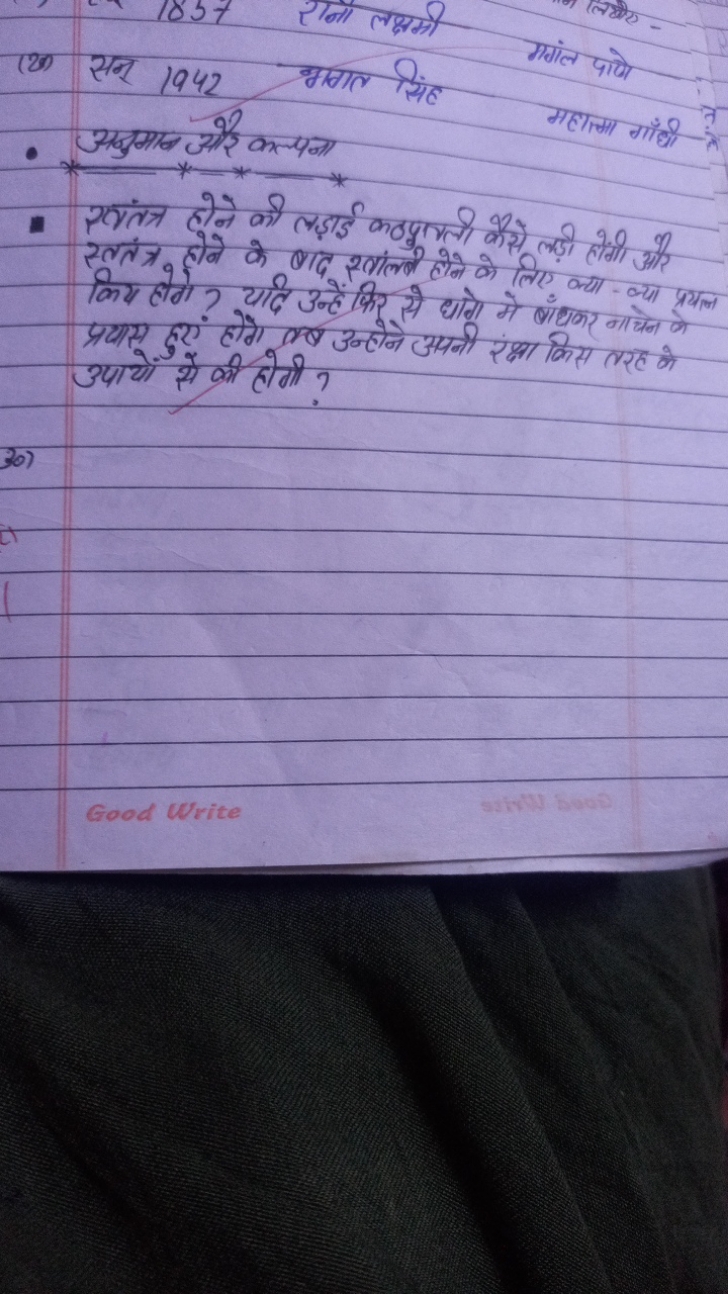 1857 रानी लक्ष्मी
मगंल पाण्डे
(ख) सन् 1942 भगत सिंह
महात्मा गाँधी
• अनुमान और कल्पना
■ स्वतंत्र होने की लड़ाई कठपुतली कैसे लड़ी होगी और
स्वतंत्र होने के बाद स्वांलबी होने के लिए क्या - क्या प्रयत्न
किय होगे? यदि उन्हें फिर से धागे मे बाँधकर नाचेन के
प्रयास हुएं होगे तब उन्होने अपनी रंक्षा किस तरह के
उपायों से की होगी?
उ०)
Good Write